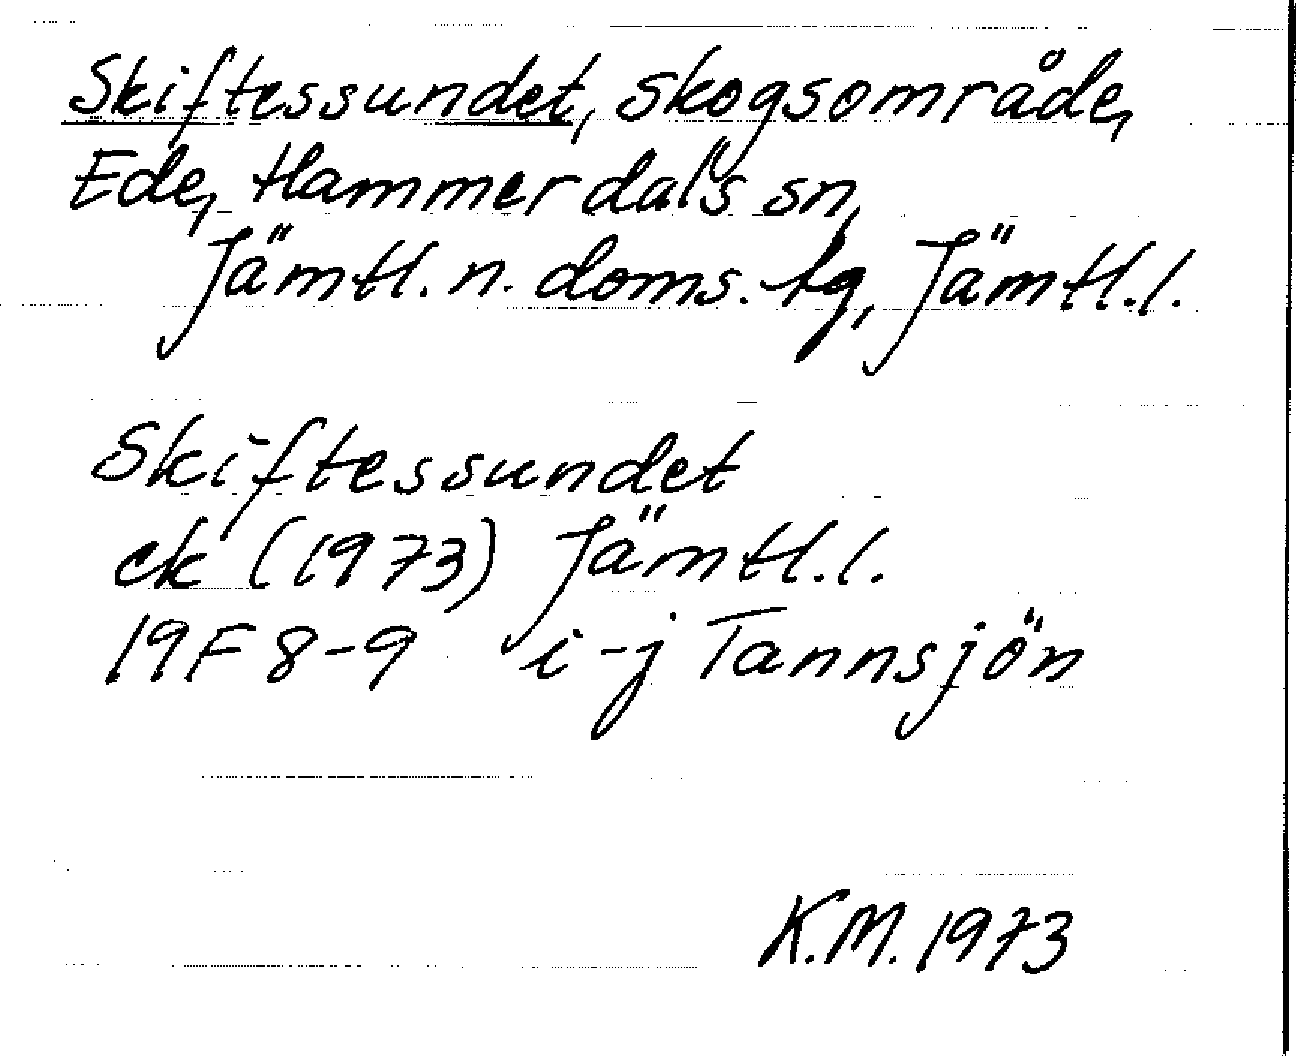 Skiftessundet, skogsområde,
Ede, Hammerdals sn,
Jämtl. n. doms. tg, Jämtl.l.
Skiftessundet
ek (1973) Jämtl.l.
19F 8-9 i-j Tannsjön
K.M. 1973